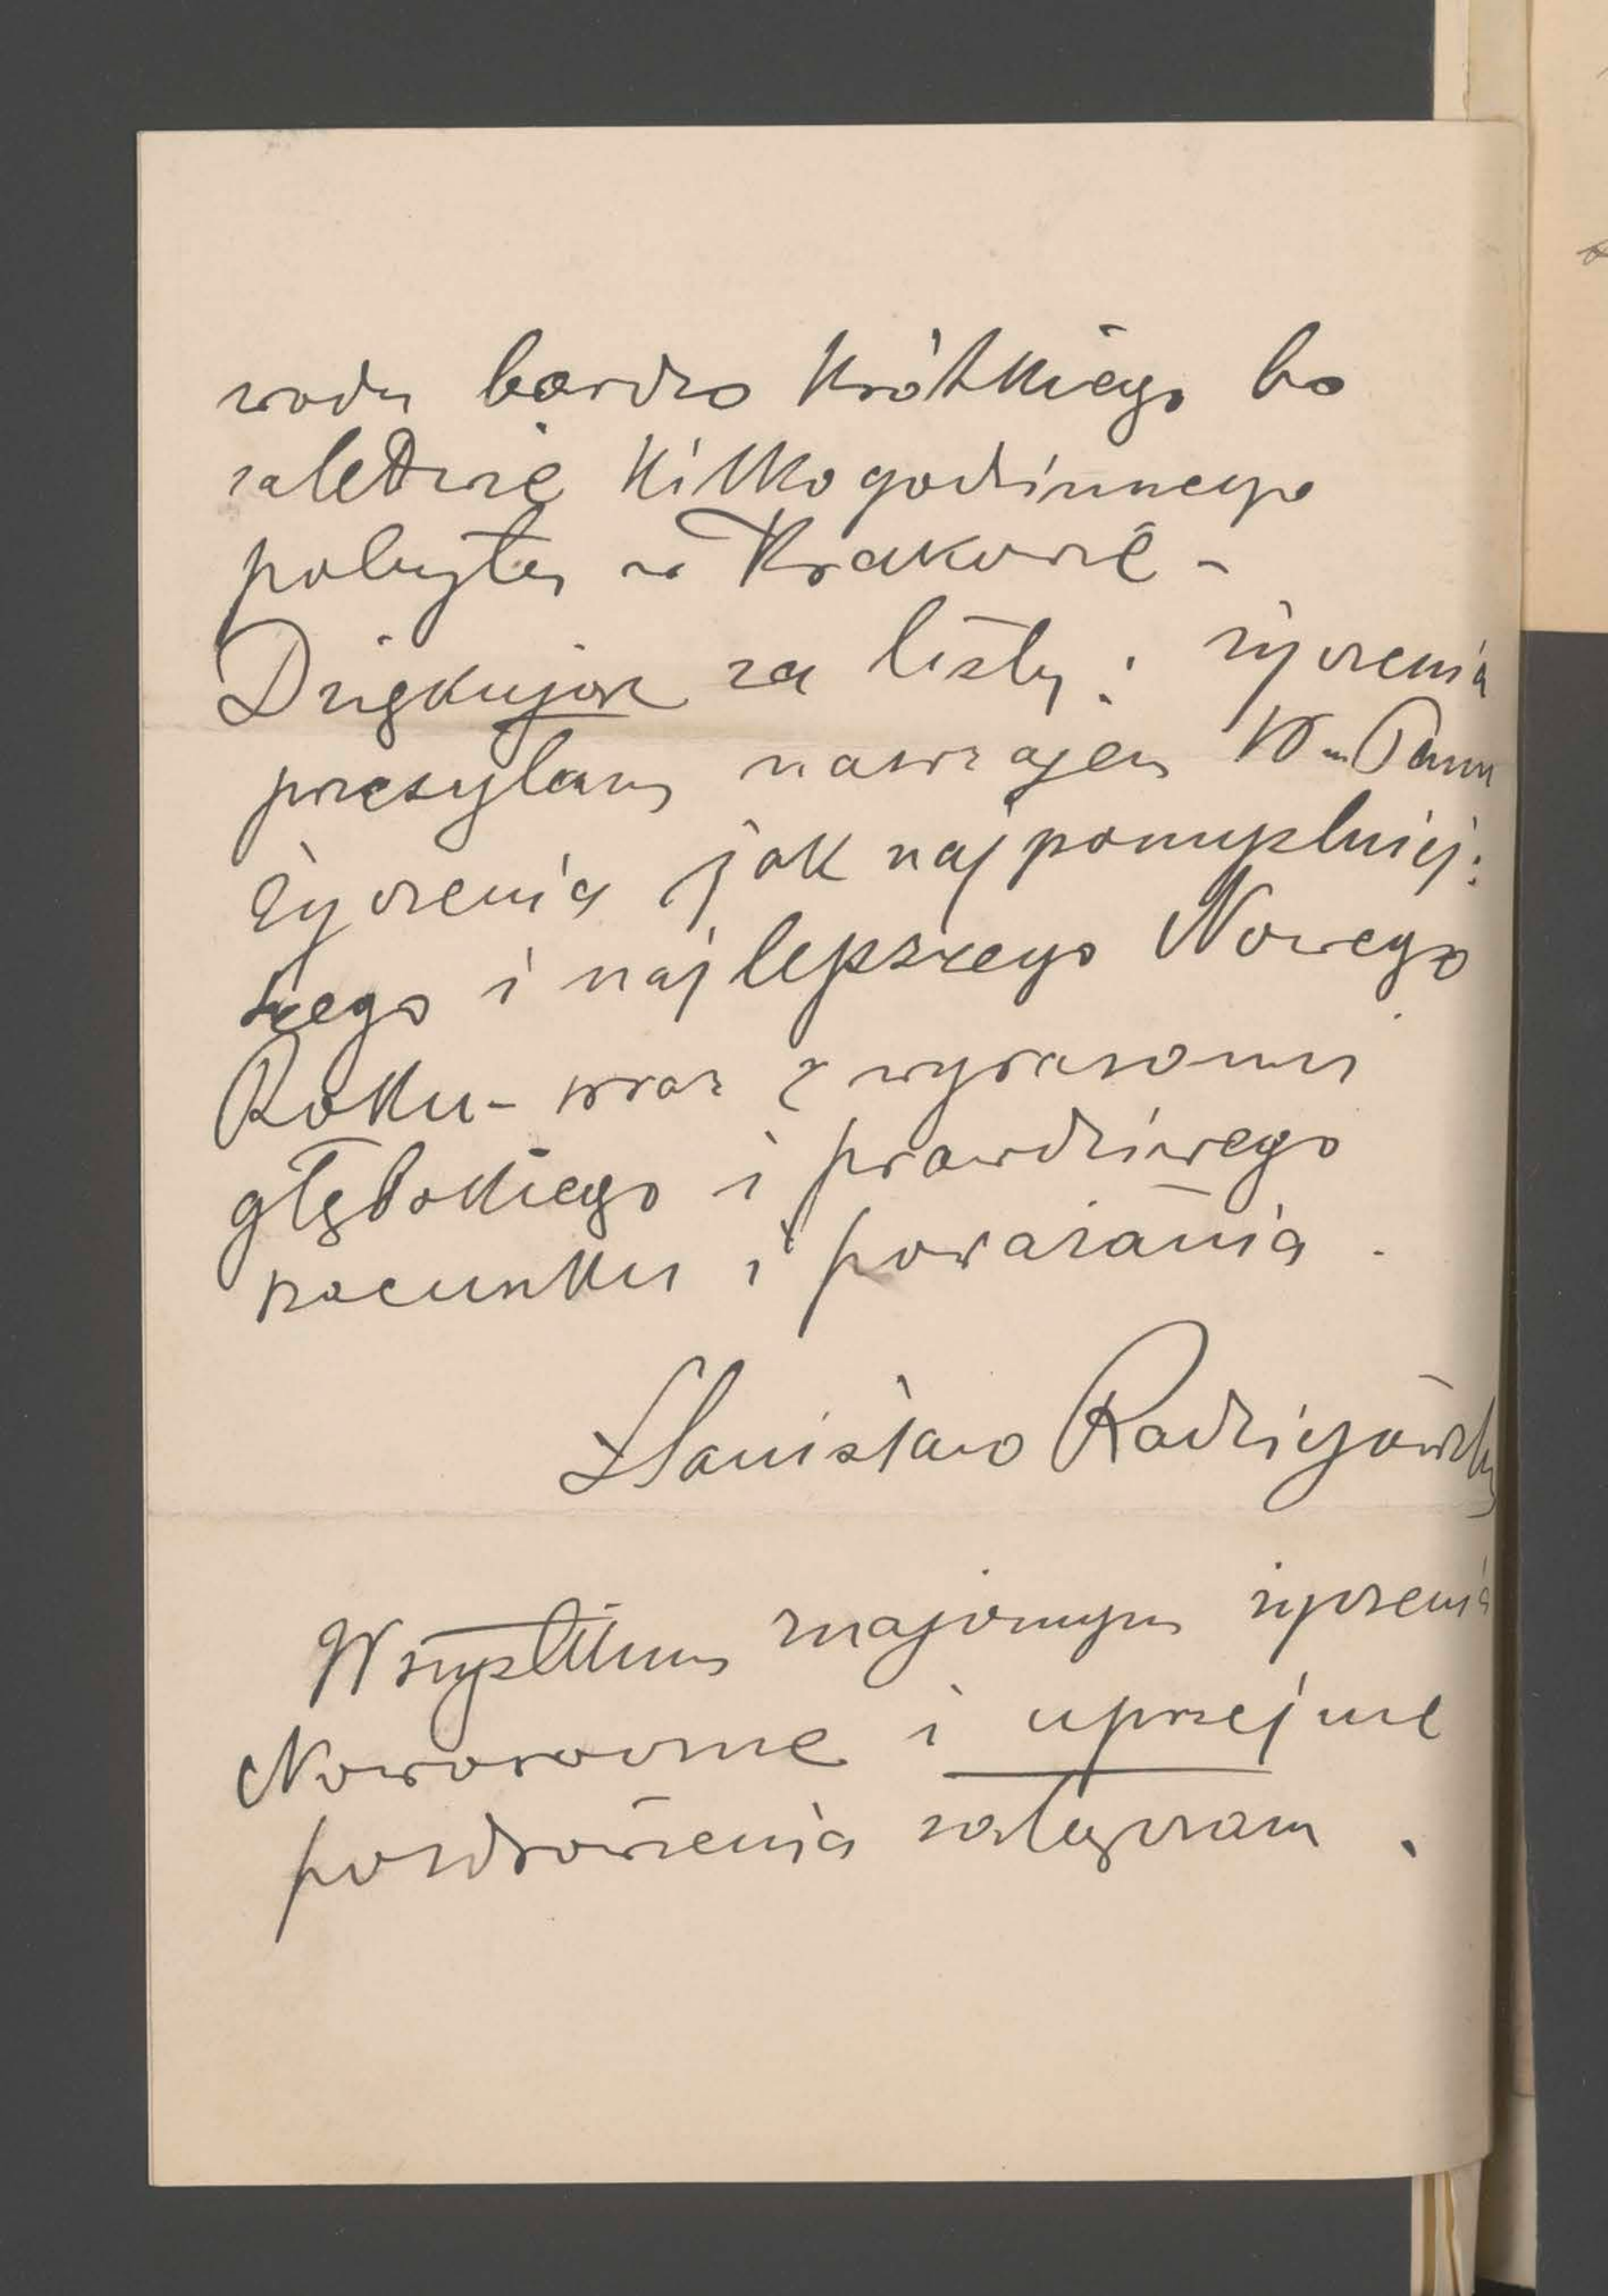 wodu bardzo krótkiego bo
zaledwie kilkogodzinnego
pobytu w Krakowie -
Dziękując za listy i życzenia
przesyłam nawzajem W-Panu
życzenia jak najpomyślniej:
szego i najlepszego Nowego
Roku - wraz z wyrazami
głębokiego i prawdziwego
szacunku i poważania .
Stanisław Radziejowski
Wszystkim znajomym życzenia
Noworoczne i uprzejme
pozdrowienia załączam .